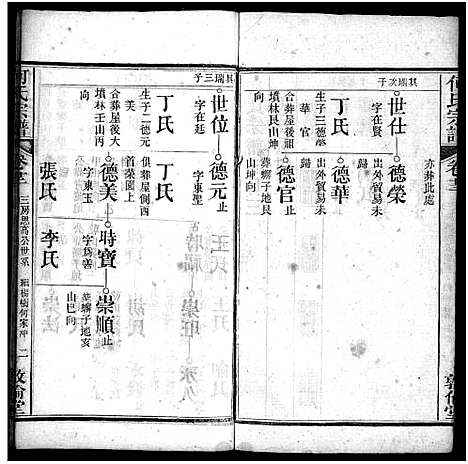 何氏宗譜
卷
亦葬此處
其瑞次子
世仕
字在賢
丁氏
生子三德榮
華官
合葬屋後祖
墳林艮山坤
向
德榮
出外貿易未
歸
德華
出外貿易未
歸
德官止
葬螂子地艮
山坤向
其瑞三子
世位
字在廷
丁氏
生子二德元
美
合葬屋後大
墳林壬山丙
向
德元止
字東聖
丁氏
俱葬屋側西
首菜園上
德美
字東玉
張氏
時寶
字爲善
李氏
崇順止
葬螂子地亥
山巳向
何氏宗譜
卷
敦倫堂